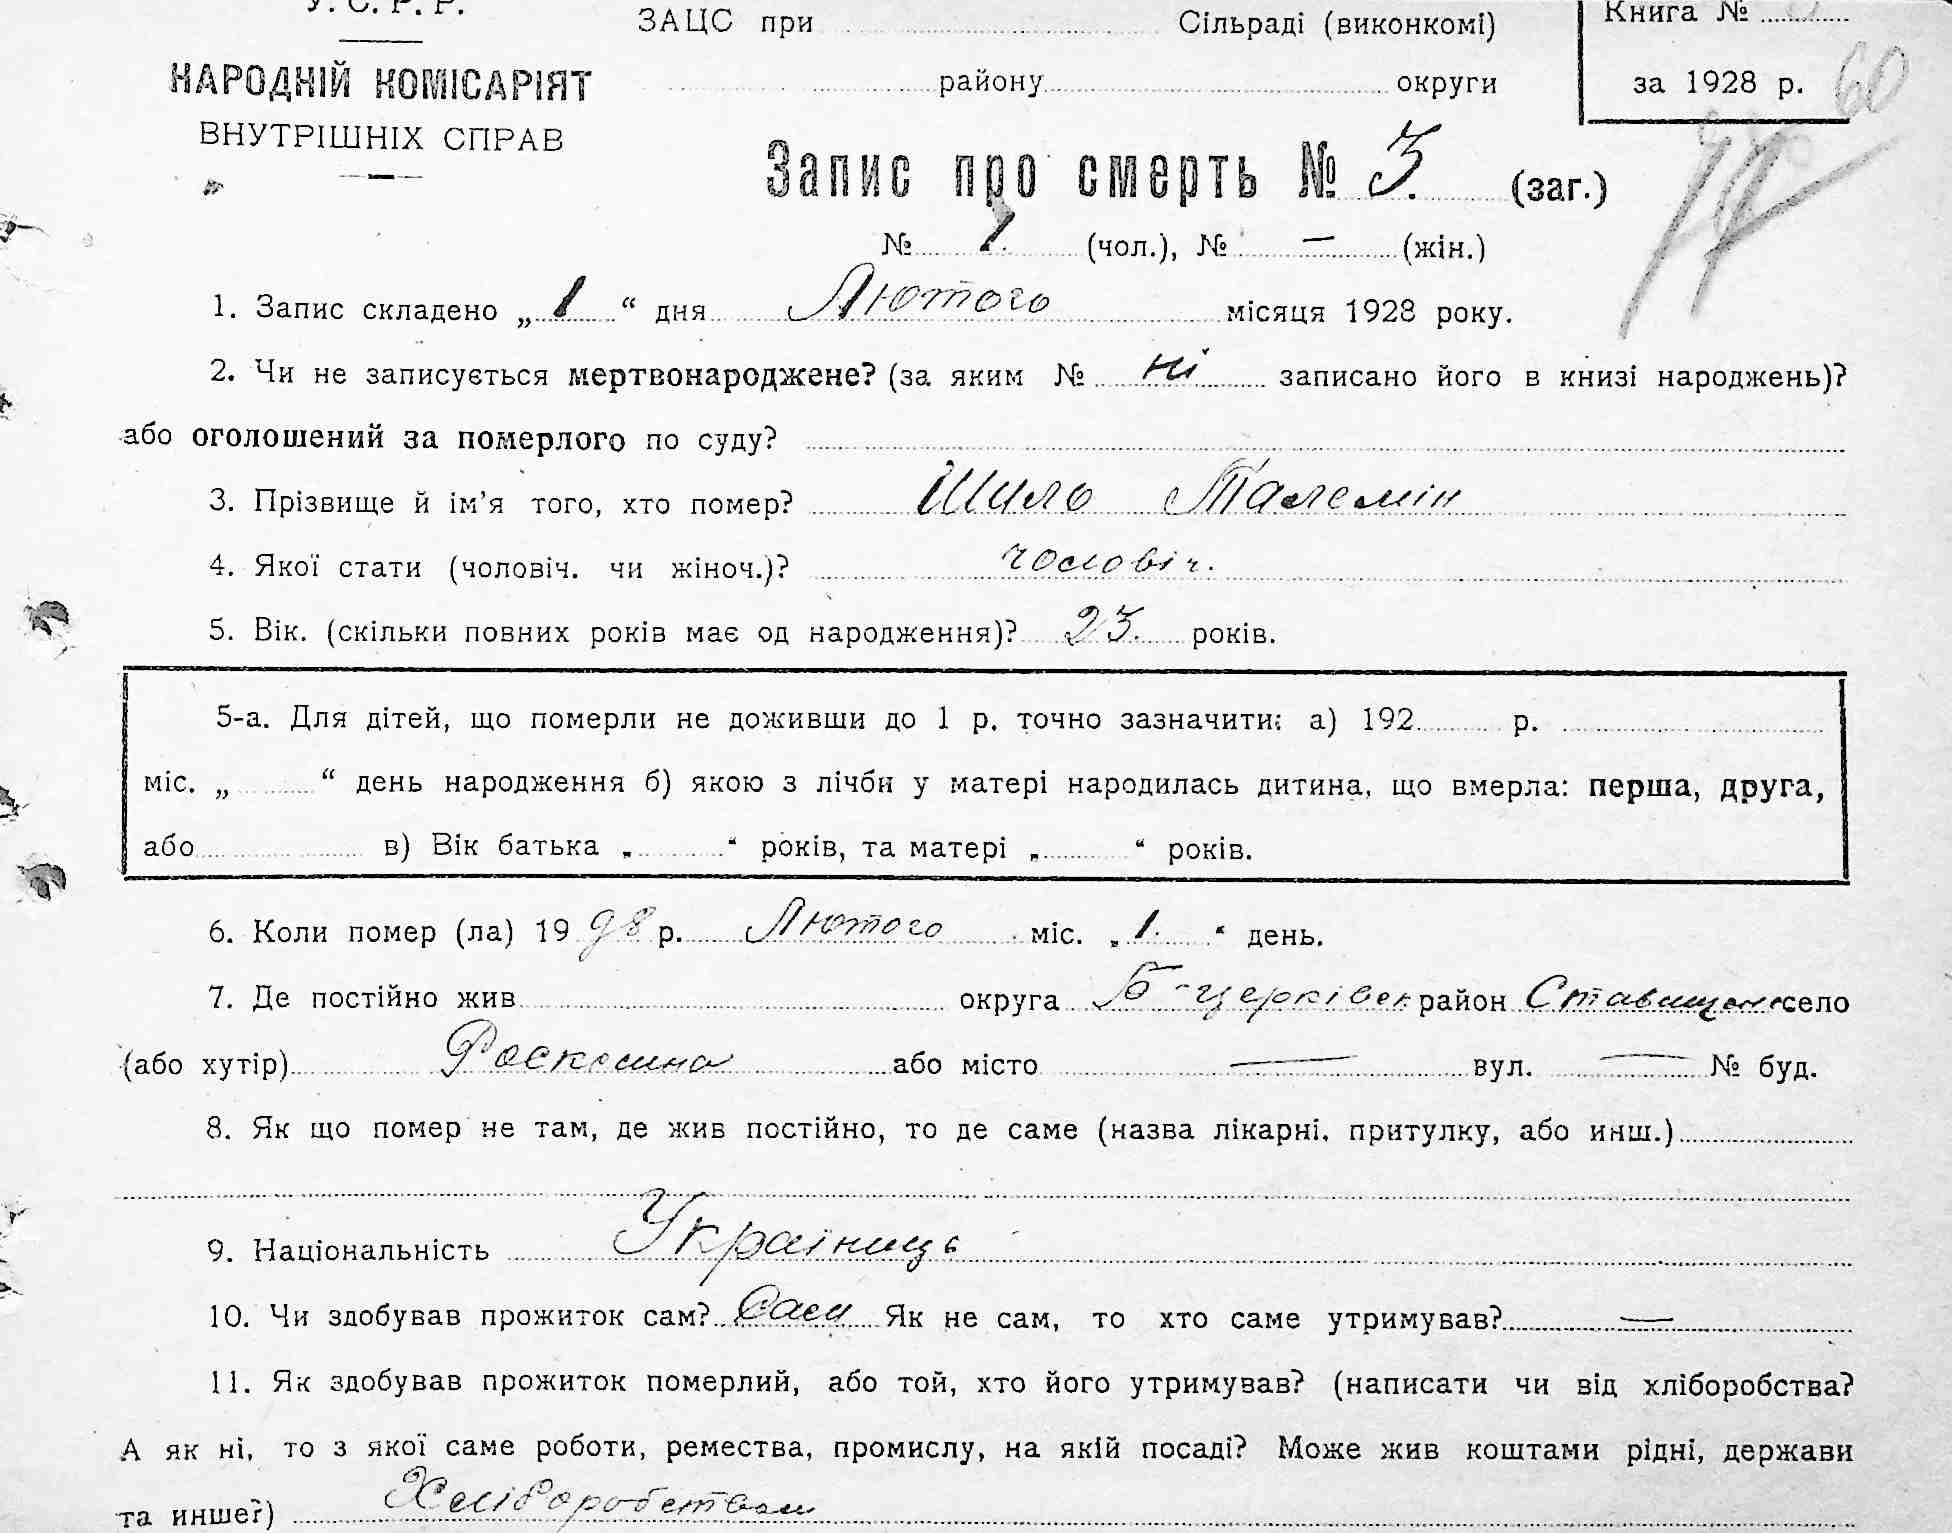 У. С. Р. Р.
НАРОДНІЙ КОМІСАРІЯТ
ВНУТРІШНІХ СПРАВ
ЗАЦС при Сільраді (виконкомі)
району округи
Книга №
за 1928 р. 60
Запис про смерть № 3. (заг.)
№ 1. (чол.), № — (жін.)
1. Запис складено „ 1 “ дня Лютого місяця 1928 року.
2. Чи не записується мертвонароджене? (за яким № ні записано його в книзі народжень)?
або оголошений за померлого по суду?
3. Прізвище й ім’я того, хто помер? Шиль Талемін
4. Якої стати (чоловіч. чи жіноч.)? чоловіч.
5. Вік. (скільки повних років має од народження)? 23. років.
5-а. Для дітей, що померли не доживши до 1 р. точно зазначити: а) 192 р.
міс. „ “ день народження б) якою з лічби у матері народилась дитина, що вмерла: перша, друга,
або в) Вік батька „ “ років, та матері „ “ років.
6. Коли помер (ла) 19 28 р. Лютого міс. „ 1. “ день.
7. Де постійно жив округа Б-церківськ район Ставищенс село
(або хутір) Роскошна або місто — вул. — № буд.
8. Як що помер не там, де жив постійно, то де саме (назва лікарні, притулку, або инш.)
9. Національність Українець
10. Чи здобував прожиток сам? Сам Як не сам, то хто саме утримував? —
11. Як здобував прожиток померлий, або той, хто його утримував? (написати чи від хліборобства?
А як ні, то з якої саме роботи, ремества, промислу, на якій посаді? Може жив коштами рідні, держави
та инше?) Хліборобством